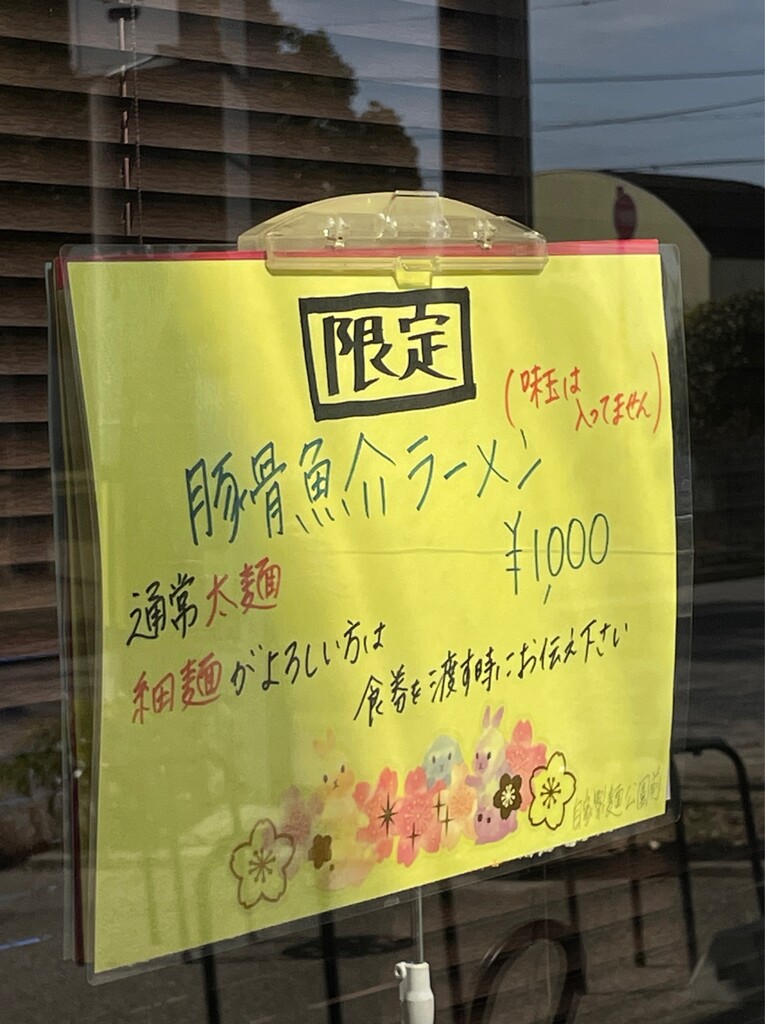 限定
(味玉は
入ってません)
豚骨魚介ラーメン
¥1,000
通常太麺
細麺がよろしい方は
食券を渡す時にお伝え下さい
自家製麺公園前